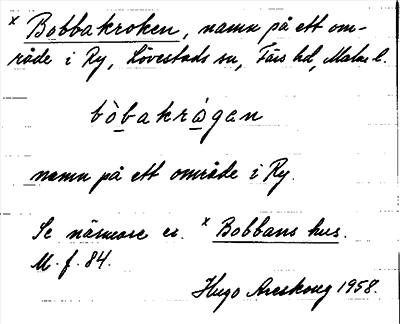 x Bobbakroken, namn på ett om-
råde i Ry, Lövestads sn, Färs hd, Malm. l.
bòbakrågan
namn på ett område i Ry.
Se närmare ex. x Bobbans hus.
M. f. 84.
Hugo Areskoug 1958.